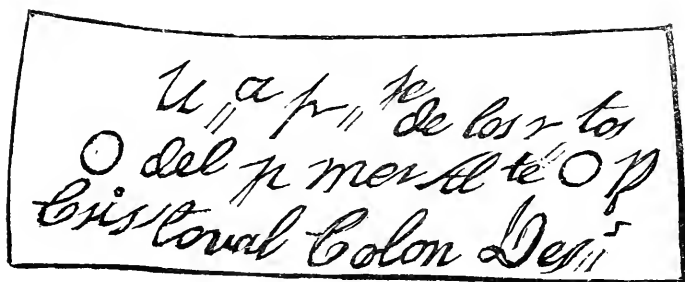 U,, a p,, te de los r,, tos
del p mer Al te D
Cristoval Colon Des,, r